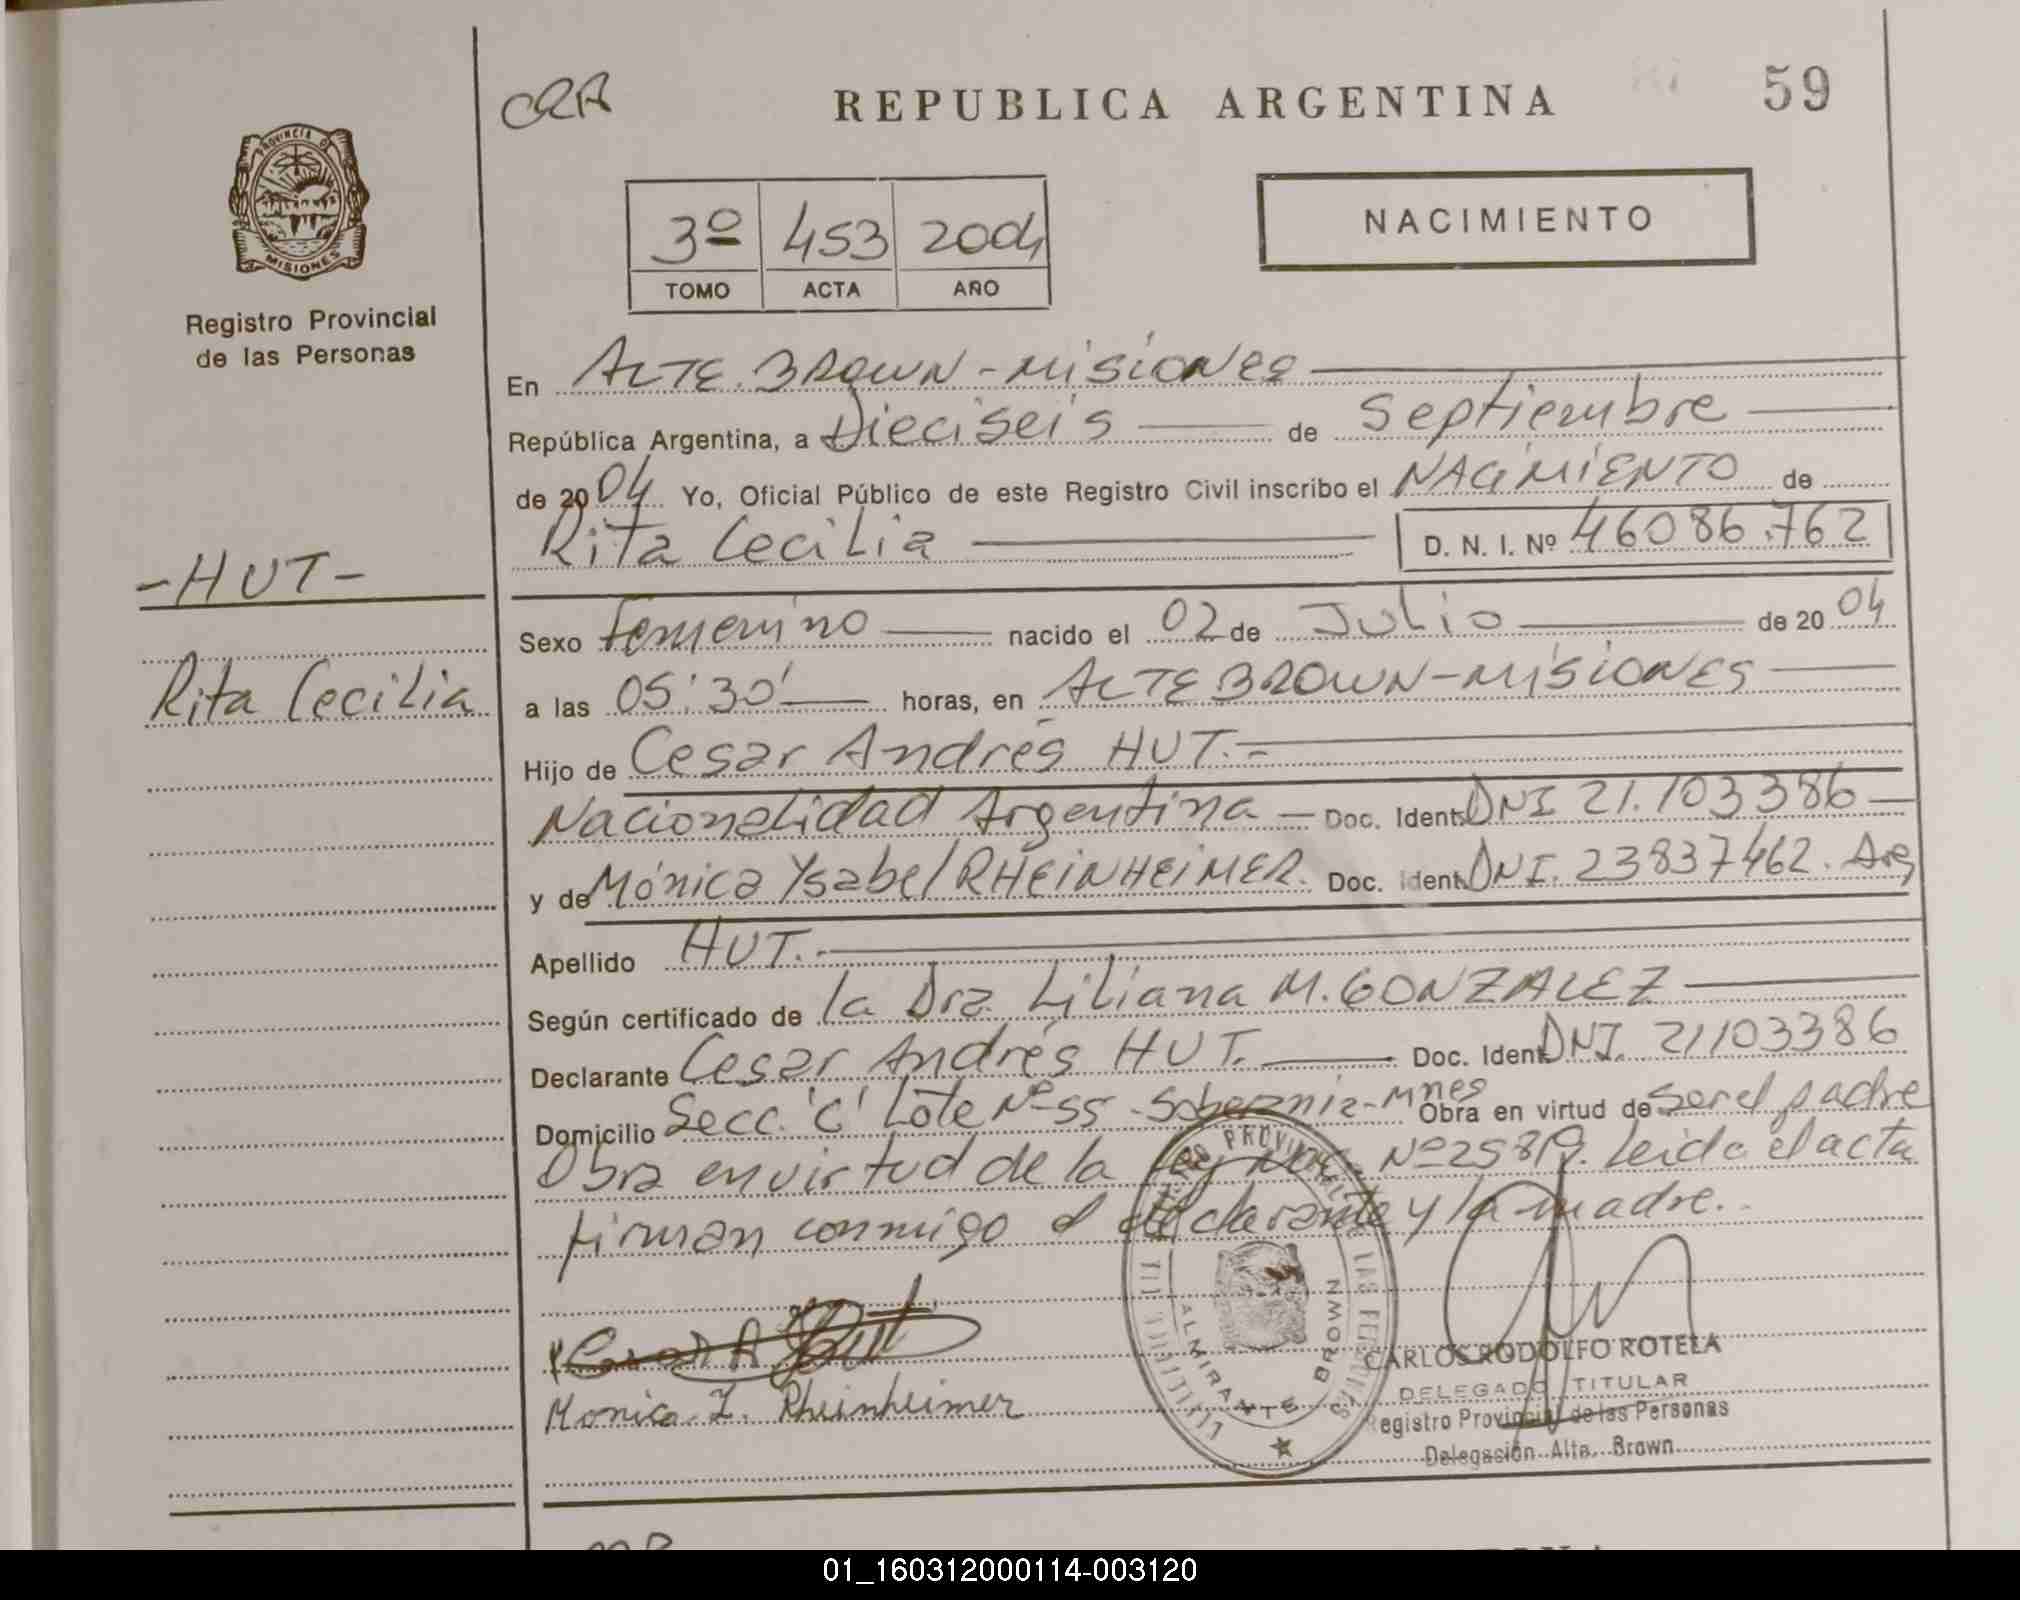 CRR
REPUBLICA ARGENTINA
59
PROVINCIA D
MISIONES
Registro Provincial
de las Personas
3º 453 2004
TOMO ACTA AÑO
NACIMIENTO
En ALTE. BROWN - MISIONES
República Argentina, a Dieciseis de Septiembre
de 2004 Yo, Oficial Público de este Registro Civil inscribo el NACIMIENTO de
Rita Cecilia D. N. I. Nº 46086.762
-HUT-
Rita Cecilia
Sexo Femenino nacido el 02 de Julio de 2004
a las 05:30' horas, en ALTE BROWN - MISIONES
Hijo de Cesar Andrés HUT.-
Nacionalidad Argentina - Doc. Ident. DNI 21.103386
y de Mónica Ysabel RHEINHEIMER. Doc. Ident. DNI. 23837462. Arg
Apellido HUT.-
Según certificado de la Dra. Liliana M. GONZALEZ
Declarante Cesar Andrés HUT. Doc. Ident. DNI. 21103386
Domicilio Secc. 'C' Lote Nº 55 - Soberania - Mnes Obra en virtud de ser el padre
Obra en virtud de la Ley Nº 25819. Leida el acta
firman conmigo el declarante y la madre.
Monica I. Rheinheimer
PROVINCIAL DE LAS PERSONAS
ALMIRANTE BROWN
CARLOS RODOLFO ROTELA
DELEGADO TITULAR
Registro Provincial de las Personas
Delegación Alte. Brown
01_160312000114-003120